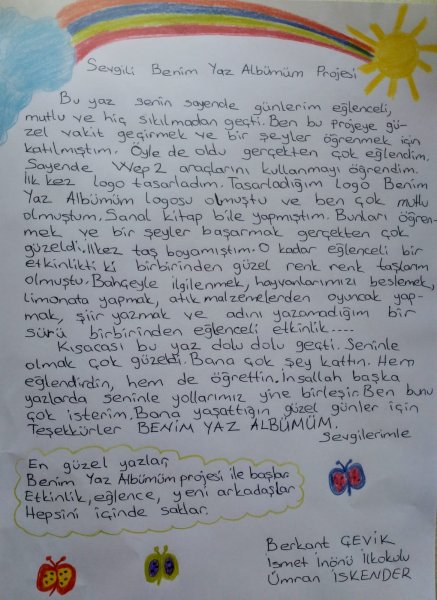 Sevgili Benim Yaz Albümüm Projesi
Bu yaz senin sayende günlerim eğlenceli,
mutlu ve hiç sıkılmadan geçti. Ben bu projeye gü-
zel vakit geçirmek ve bir şeyler öğrenmek için
katılmıştım. Öyle de oldu gerçekten çok eğlendim.
Sayende Wep2 araçlarını kullanmayı öğrendim.
İlk kez logo tasarladım. Tasarladığım logo Benim
Yaz Albümüm logosu olmuştu ve ben çok mutlu
olmuştum. Sanal kitap bile yapmıştım. Bunları öğren-
mek ve bir şeyler başarmak gerçekten çok
güzeldi. İlkez taş boyamıştım. O kadar eğlenceli bir
etkinlikti ki birbirinden güzel renk renk taşlarım
olmuştu. Bahçeyle ilgilenmek, hayvanlarımızı beslemek,
limonata yapmak, atık malzemelerden oyuncak yap-
mak, şiir yazmak ve adını yazamadığım bir
sürü birbirinden eğlenceli etkinlik....
Kısacası bu yaz dolu dolu geçti. Seninle
olmak çok güzeldi. Bana çok şey kattın. Hem
eğlendirdin, hem de öğrettin. İnsallah başka
yazlarda seninle yollarımız yine birleşir. Ben bunu
çok isterim. Bana yaşattığın güzel günler için
Teşekkürler BENİM YAZ ALBÜMÜM.
Sevgilerimle
En güzel yazlar,
Benim Yaz Albümüm projesi ile başlar.
Etkinlik, eğlence, yeni arkadaşlar
Hepsini içinde saklar.
Berkant ÇEVİK
İsmet İnönü İlkokulu
Ümran İSKENDER